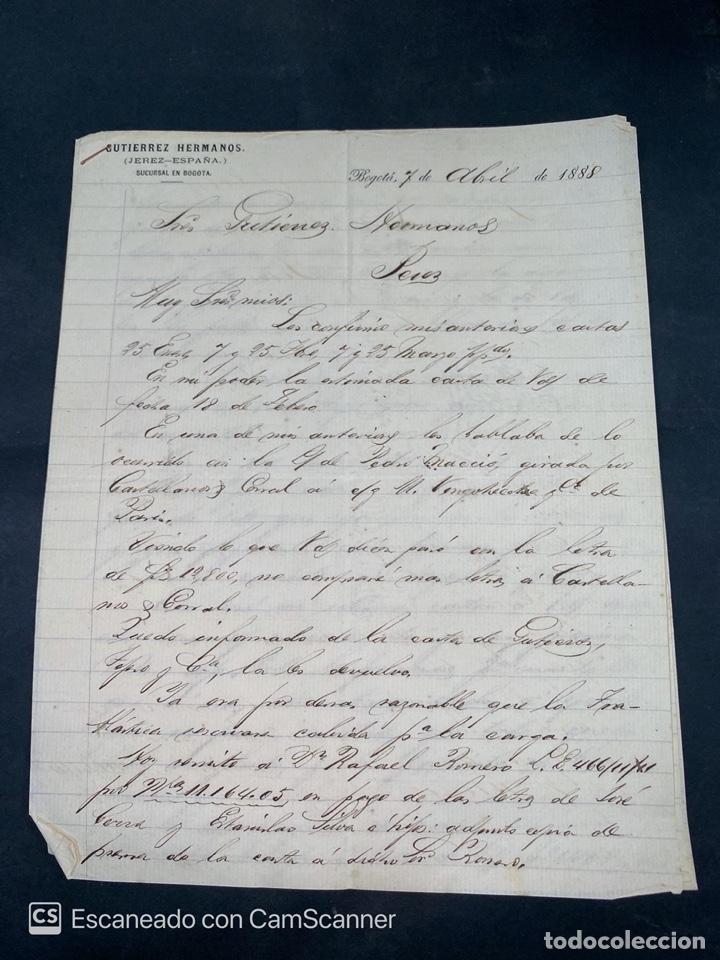 GUTIERREZ HERMANOS.
(JEREZ–ESPAÑA.)
SUCURSAL EN BOGOTA.
Bogotá, 7 de Abril de 1888
Sres Gutierrez Hermanos
Jerez
Muy Sres mios:
Les confirmo mis anteriores cartas
25 Enero, 7 y 25 Fbo, 7 y 25 Marzo ppdo.
En mi poder la estimada carta de Vds de
fecha 18 de Febro.
En una de mis anteriores les hablaba de lo
ocurrido con la de Pedro girada por
Castellanos & Corral á c/g M. de
Paris.
Viendo lo que Vds dicen pasó con la letra
de 12,800, no compraré mas letras á Castella-
nos & Corral.
Quedo informado de la carta de Gutierrez,
y Ca, la les devuelvo.
Ya era por demas razonable que la Tra-
atlántica cabida pa la carga.
Hoy remito á Dn Rafael Romero L. E. 466/11/61
por 11.164.05, en pago de las letras de José
y Estanislao Silva é hijo: adjunto copia de
prensa de la carta á dicho Sor Romero.
CS Escaneado con CamScanner
todocoleccion